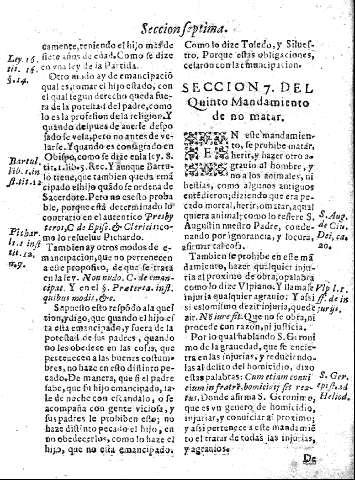 Seccion septima.
camente, teniendo el hijo mas de
siete años de edad. Como se dize
en vna ley de la Partida.
Ley. 16.
tit. 16.
§. 14.
Otro modo ay de emancipació
qual es, tomar el hijo estado, con
el qual segun derecho queda fue-
ra de la potestad del padre, como
lo es la profesion de la religion. Y
quando despues de auerse despo-
sado se vela, pero no antes de ve-
larse. Y quando es consagrado en
Obispo, como se dize en la ley. 8.
tit. 1. lib. 5. Rec. Y aunque Bartu-
lo tiene, que tambien queda emá
cipado el hijo quádo se ordena de
Sacerdote. Pero no es esto proba
ble, porque está determinado lo
contrario en el autentico Presby
teros, C de Episc. & Clericis: co-
mo lo resuelue Pichardo.
Bartul.
lib. 1. in
stit. tit. 12
Pichar.
li. 1. insti
tit. 12.
n. 9.
Tambien ay otros modos de e-
mancipacion, que no pertenecen
a este proposito, de que se trata
en la ley. Non nudo, C. de eman-
cipat. Y en el §. Præterea. inst.
quibus modis, &c.
Supuesto esto respódo a la quest
tion, y digo, que quando el hijo es
ta esta emancipado, y fuera de la
potestad de sus padres, quando
no les obedece en las cosas, que
pertenecen a las buenas costum-
bres, no haze en esto distinto pe-
cado. De manera, que si el padre
sabe, que su hijo emancipado, sa-
le de noche con escandalo, o se
acompaña con gente viciosa, y
sus padres le prohiben esto; no
haze distinto pecado el hijo, en
no obedecerlos, como lo haze el
hijo, que no esta emancipado.
Como lo dize Toledo, y Silues-
tro. Porque estas obligaciones,
cesaron con la emancipacion.
SECCION 7. DEL
Quinto Mandamiento
de no matar.
EN este mandamien-
to, se prohibe matar,
herir, y hazer otro a-
grauio al hombre, y
no a los animales, ni
bestias, como algunos antiguos
entendieron; diziendo, que era pe-
cado mortal, herir, o matar, qual
quiera animal; como lo refiere S
Augustin nuestro Padre, conde-
nando por ignorancia, y locura,
afirmar tal cosa.
S. Aug.
de Ciu.
Dei, ca.
20.
Tambien se prohibe en este má
damiento, hazer qualquier inju-
ria al proximo de obra, o palabra
como lo dize Vlpiano. Y llamase
injuria qualquier agrauio: Y assi
es lo mismo dezir injuria, que de-
zir. Nó iure fit. Que no se obra, ni
procede con razon, ni justicia.
Vlp. l. 1.
ff. de in
jurijs.
Por lo qual hablando S. Geroni
mo de la grauedad, que se encie-
rra en las injurias, y reduciendo-
las al delito del homicidio, dize
estas palabras: Cum etiam conuici
cium in fratre, homicidij sit rea-
tus. Donde afirma S. Geronimo,
que es vn genero de homicidio,
injuriar, y conuiciar al proximo;
y assi pertenece a este mandamié
to el tratar de todas las injurias,
y agrauios.
S. Ger.
epist. ad
Heliod.
De